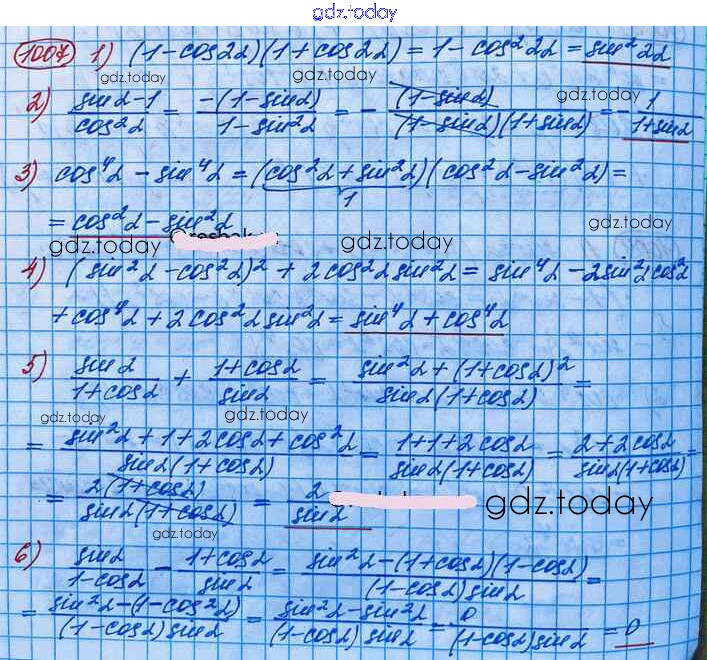 gdz.today
1007 1) (1-cos2α)(1+cos2α) = 1-cos²2α = sin²2α
gdz.today gdz.today
2) (sinα-1)/(cos²α) = (-(1-sinα))/(1-sin²α) = -(1-sinα)/((1-sinα)(1+sinα)) = -1/(1+sinα)
3) cos⁴α - sin⁴α = (cos²α + sin²α)(cos²α - sin²α) =
1
= cos²α - sin²α
gdz.today
gdz.today gdz.today
4) (sin²α - cos²α)² + 2cos²α sin²α = sin⁴α - 2sin²α cos²α
+ cos⁴α + 2cos²α sin²α = sin⁴α + cos⁴α
5) sinα/(1+cosα) + (1+cosα)/sinα = (sin²α + (1+cosα)²)/(sinα(1+cosα)) =
gdz.today gdz.today
= (sin²α + 1 + 2cosα + cos²α)/(sinα(1+cosα)) = (1+1+2cosα)/(sinα(1+cosα)) = (2+2cosα)/(sinα(1+cosα)) =
= (2(1+cosα))/(sinα(1+cosα)) = 2/sinα
gdz.today
gdz.today
6) sinα/(1-cosα) - (1+cosα)/sinα = (sin²α - (1+cosα)(1-cosα))/((1-cosα)sinα) =
= (sin²α - (1-cos²α))/((1-cosα)sinα) = (sin²α - sin²α)/((1-cosα)sinα) = 0/((1-cosα)sinα) = 0